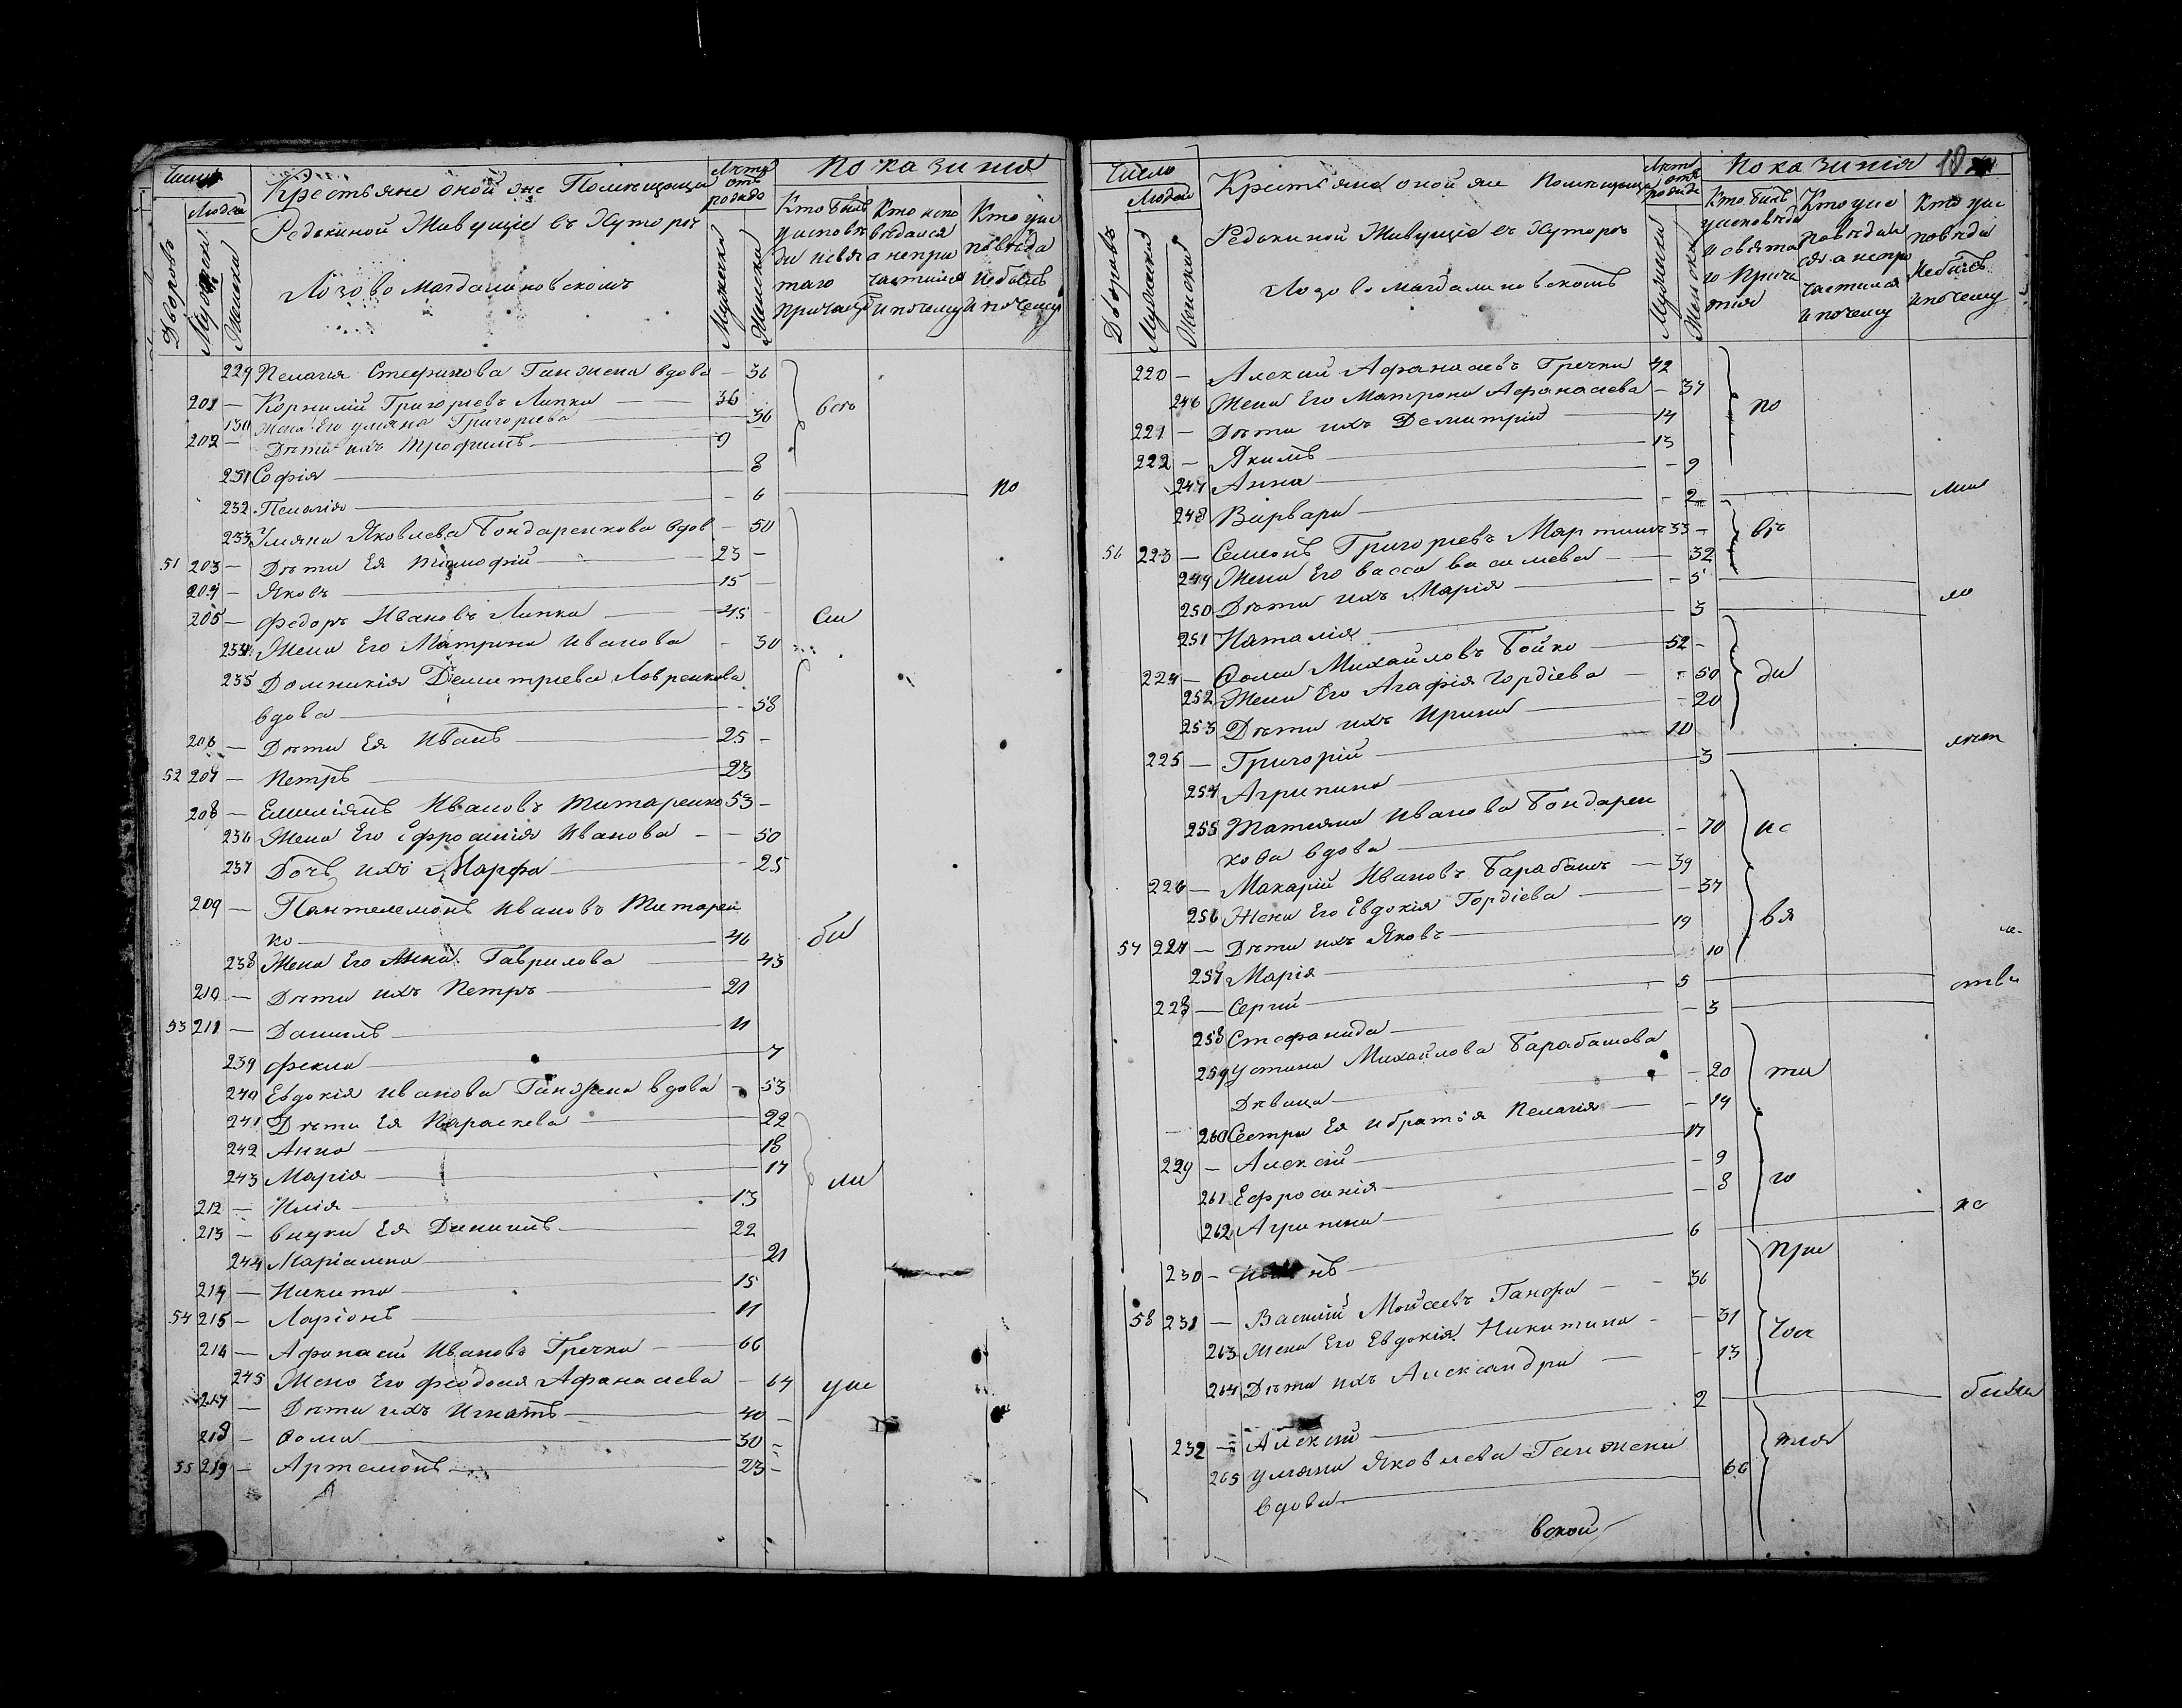 Число
Людей
Дворовъ
Мужеск.
Женска
Крестьяне оной же Помещицы
Редькиной Живущие въ Хуторе
Лозово Магдалиновскомъ
Лета отъ рода
Мужеска
Женска
Показания
Кто былъ у исповеди и святаго причас
Кто исповедался а не причастился и почему
Кто у исповеди не былъ и почему
229 Пелагия Стефанова Ганжена вдова — 36
201 — Корнилий Григориевъ Липка — 36 всъ
130 Жена Его Уляна Григориева — 36
202 — Дети ихъ Трофимъ — 9
231 София — 8
232 Пелагия — 6 по
233 Уляна Яковлева Бондаренкова вдов — 50
51 203 — Дети Ея Тимофий — 23 —
204 — Яковъ — 15 —
205 — Федоръ Ивановъ Липка — 45 — сии
234 Жена Его Матрона Иванова — 30
235 Домникия Демитриева Лавренкова
вдова — 58
206 — Дети Ея Иванъ — 25 —
52 207 — Петръ — 23
208 — Емилиянъ Ивановъ Титаренко 53 —
236 Жена Его Ефросиния Иванова — 50
237 Дочь ихъ Марфа — 25
209 — Пантелемонъ Ивановъ Титарен
ко — 46 бы
238 Жена Его Анна Гаврилова — 43
210 — Дети ихъ Петръ — 21
53 211 — Данилъ — 11
239 Фекла — 7
240 Евдокия Иванова Ганжена вдова — 53
241 Дети Ея Параскева — 22
242 Анна — 18
243 Мария — 17 ли
212 — Илия — 13
213 — внуки Ея Даниилъ — 22
244 Марианна — 21
214 — Никита — 15
54 215 — Ларионъ — 11
216 — Афанасий Ивановъ Гречка — 66
245 Жена Его Феодосия Афанасиева — 64 уис
217 — Дети ихъ Игнатъ — 40 —
218 — Фома — 30 —
55 219 — Артемонъ — 23 —
Число
Людей
Дворовъ
Мужеска
Женска
Крестьяне оной же Помещицы
Редькиной Живущие въ Хуторе
Лозово Магдалиновскомъ
Лета отъ рода
Мужеска
Женска
Показания 10
Кто былъ у исповеди и святаго Причастия
Кто исповедался а не причастился и почему
Кто у исповеди не былъ и почему
220 — Алексий Афанасиевъ Гречка 42
246 Жена Его Матрона Афанасиева — 37 по
221 — Дети ихъ Демитрий — 14
222 — Якимъ — 13
247 Анна — 9
248 Варвара — 2 мал
56 223 — Семионъ Григориевъ Мартыш 33 — ве
249 Жена Его Васса Василиева — 32
250 Дети ихъ Мария — 5
251 Наталия — 3 ло
224 — Фома Михайловъ Бойко — 52 —
252 Жена Его Агафия Гордиева — 50 ди
253 Дети ихъ Ирина — 20
225 — Григорий — 10
254 Агрипина — 3 лет
255 Татияна Иванова Бондарен
кова вдова — 70 ис
226 — Макарий Ивановъ Барабашъ — 39
256 Жена Его Евдокия Гордиева — 37
57 227 — Дети ихъ Яковъ — 19 вя
257 Мария — 10
228 — Сергий — 5 ств
258 Стефанида — 3
259 Устина Михайлова Барабашева
Девица — 20 та
260 Сестры Ея и братия Пелагия — 19
229 — Алексий — 17
261 Ефросиния — 9
262 Агрипина — 8 го
230 — 6 не
58 231 — Василий Моисеевъ Ганжа — 36 при
263 Жена Его Евдокия Никитина — 31 час
264 Дети ихъ Александра — 13
232 — Алексий — 2 были
265 Уляна Яковлева Ганжена
вдова — 66 тия
вской